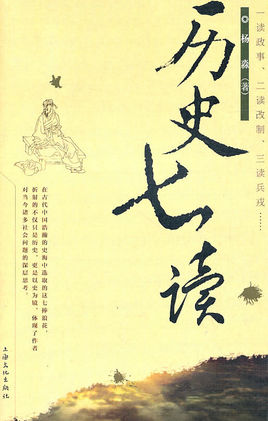 一读政事、二读改制、三读兵戎……
◎杨淼(著)
历史七读
在古代中国浩瀚的史海中选取的这七掬浪花，
折射的不仅只是历史，更是以史为镜，体现了作者
对当今诸多社会问题的深层思考。
上海文化出版社